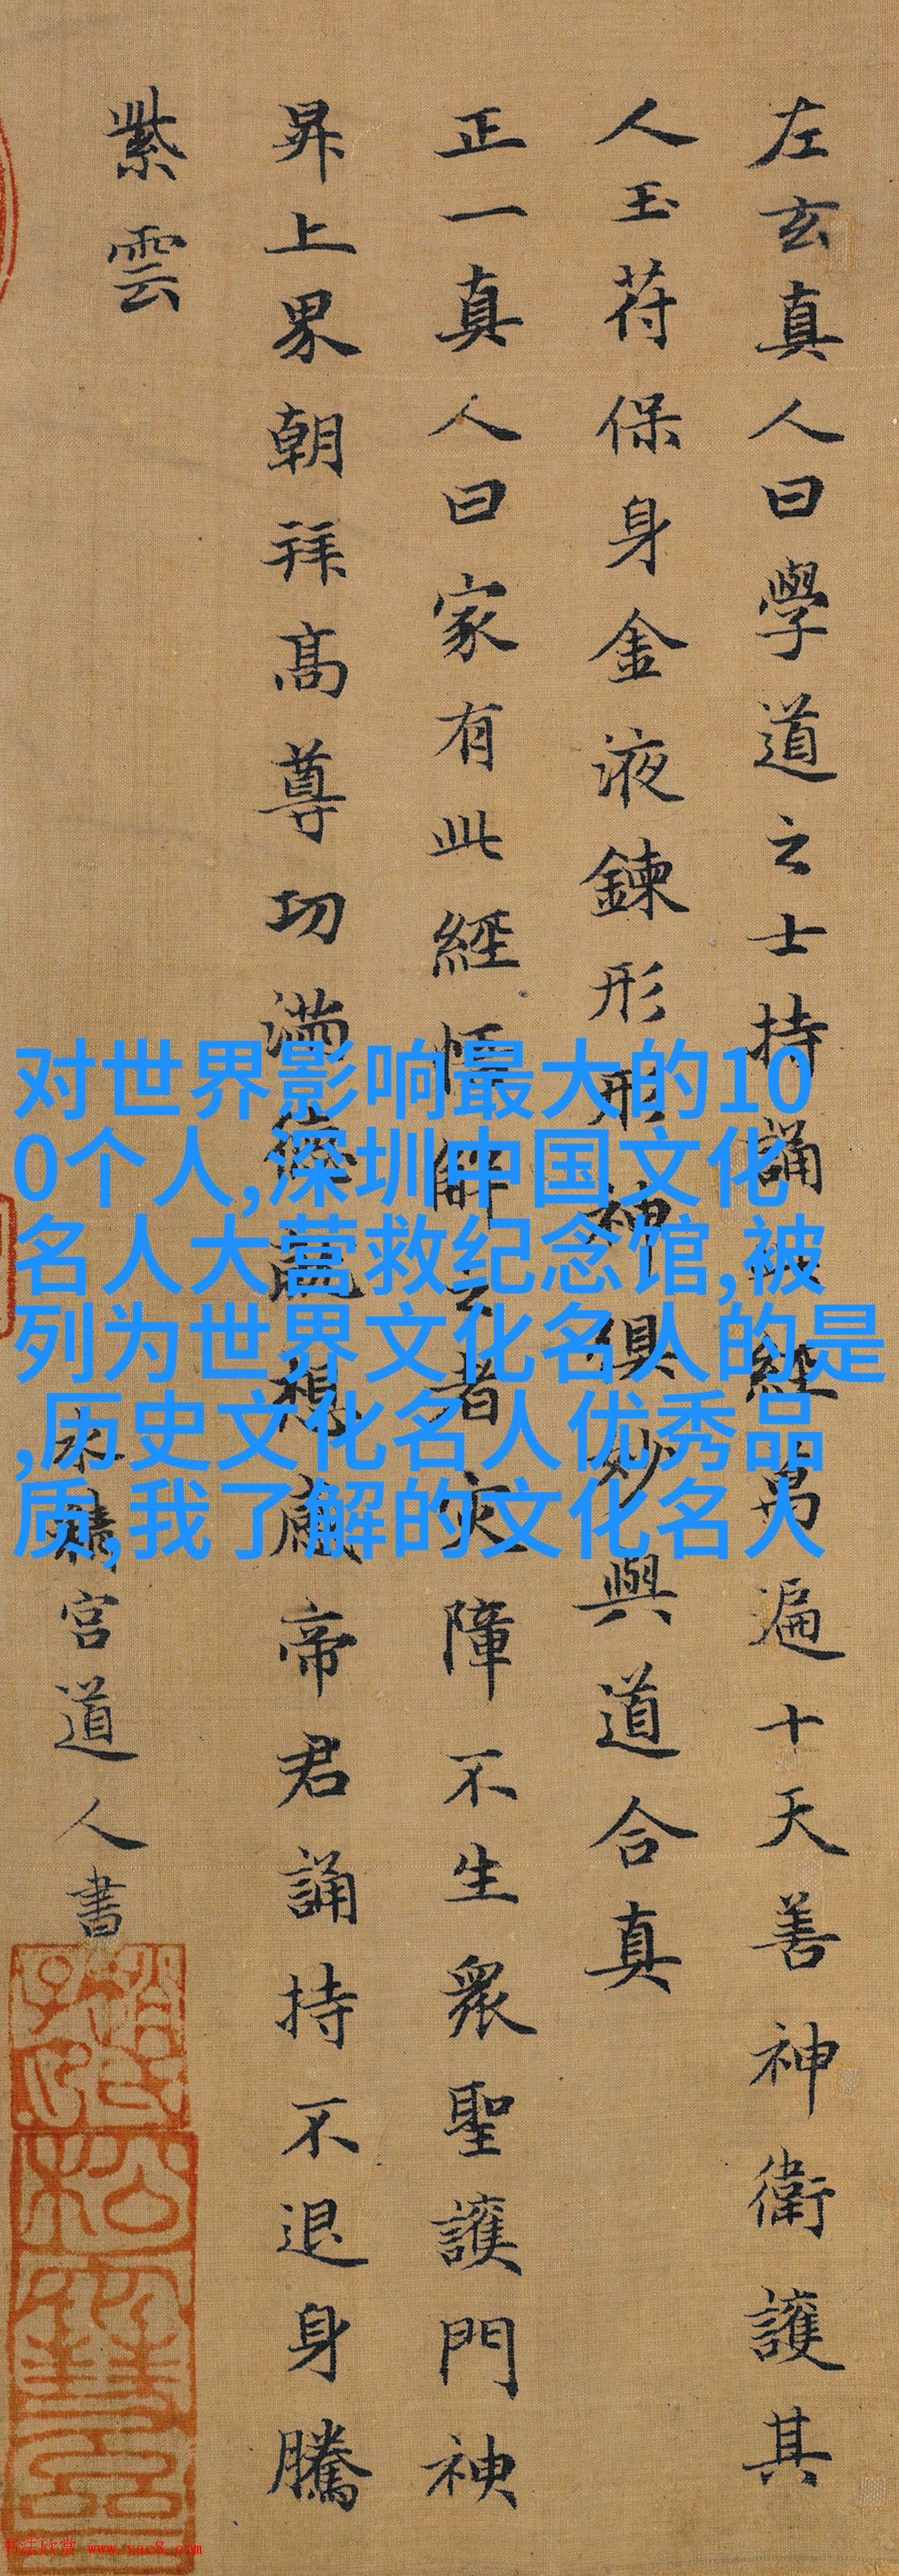 左玄真人曰學道之士持誦此經萬遍十天善神衛護其
人玉苻保身金液鍊形形神俱妙與道合真
正一真人曰家有此經悟解之者灾障不生衆聖護門神
昇上界朝拜高尊功滿德就想感帝君誦持不退身騰
紫雲
宫道人書
对世界影响最大的10
0个人,深圳中国文化
名人大营救纪念馆,被
列为世界文化名人的是
,历史文化名人优秀品
质,我了解的文化名人
书法欣赏 www.yac8.com